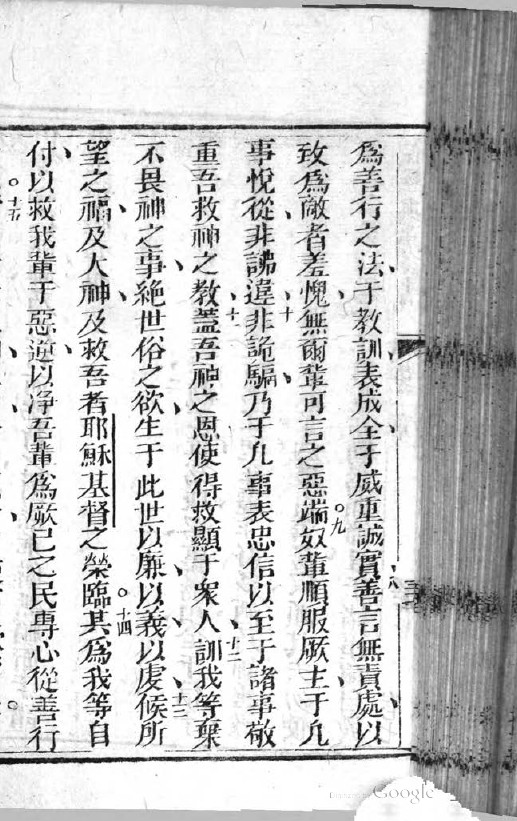 爲善行之法于教訓表成全于威重誠實八善言無責處以
致爲敵者羞愧無爾輩可言之惡端九奴輩順服厥主于凡
事悅從非諕違十非詭騙乃于凡事表忠信以至于諸事敬
重吾救神之教十一蓋吾神之恩使得救顯于衆人十二訓我等棄
不畏神之事絶世俗之欲生于此世以廉以義以虔十三候所
望之福及大神及救吾者耶穌基督之榮臨十四其爲我等自
付以救我輩于惡逆以净吾輩爲厥己之民專心從善行
十五
Google